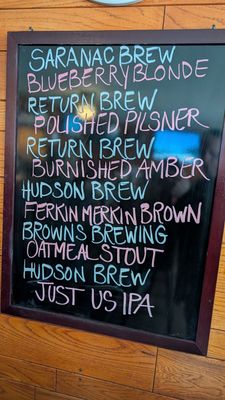 SARANAC BREW
BLUEBERRY BLONDE
RETURN BREW
POLISHED PILSNER
RETURN BREW
BURNISHED AMBER
HUDSON BREW
FERKIN MERKIN BROWN
BROWNS BREWING
OATMEAL STOUT
HUDSON BREW
JUST US IPA